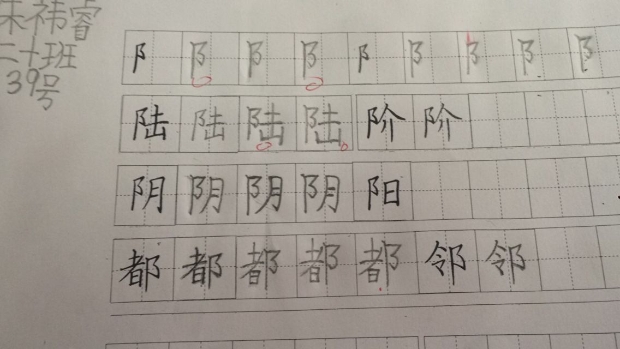 朱祎睿
二十班
39号
阝阝阝阝阝阝阝阝阝
陆陆陆陆阶阶
阴阴阴阴阳
都都都都都邻邻